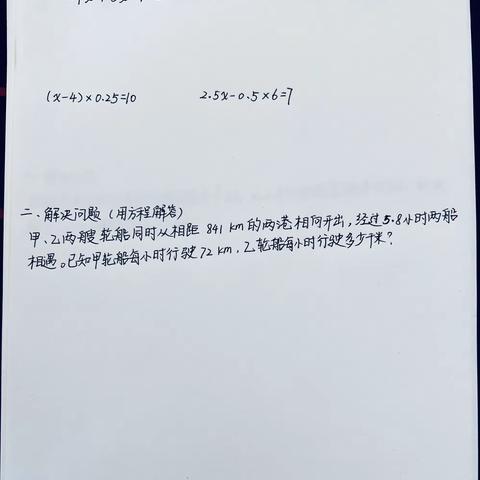 (x-4)×0.25=10 2.5x-0.5×6=7
二、解决问题（用方程解答）
甲、乙两艘轮船同时从相距 841 km 的两港相向开出，经过5.8小时两船
相遇。已知甲轮船每小时行驶72 km，乙轮船每小时行驶多少千米？